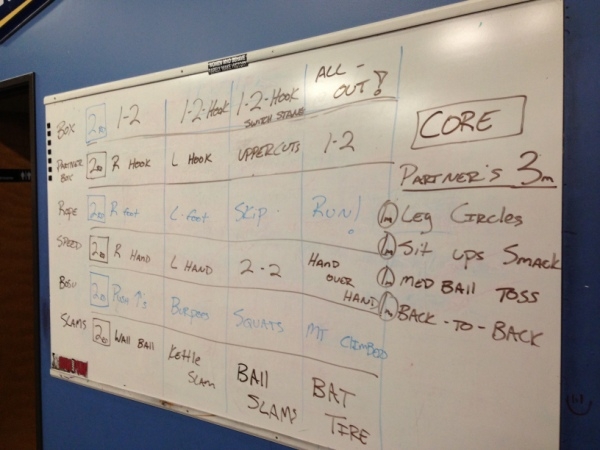 ALL-
OUT!
BOX 2:00 1-2 1-2-HOOK 1-2-HOOK
SWITCH STANCE
PARTNER
BOX 2:00 R HOOK L HOOK UPPERCUTS 1-2
ROPE 2:00 R foot L-foot SKIP RUN!
SPEED 2:00 R HAND L HAND 2-2 HAND
OVER
HAND
BOSU 2:00 Run ↑'s Burpees SQUATS MT CLIMBER
SLAMS 2:00 WALL BALL KETTLE
SLAM
BALL
SLAMS
BAT
TIRE
CORE
PARTNER'S 3m
1m LEG CIRCLES
1m SIT UPS SMACK
1m MED BALL TOSS
1m BACK-TO-BACK